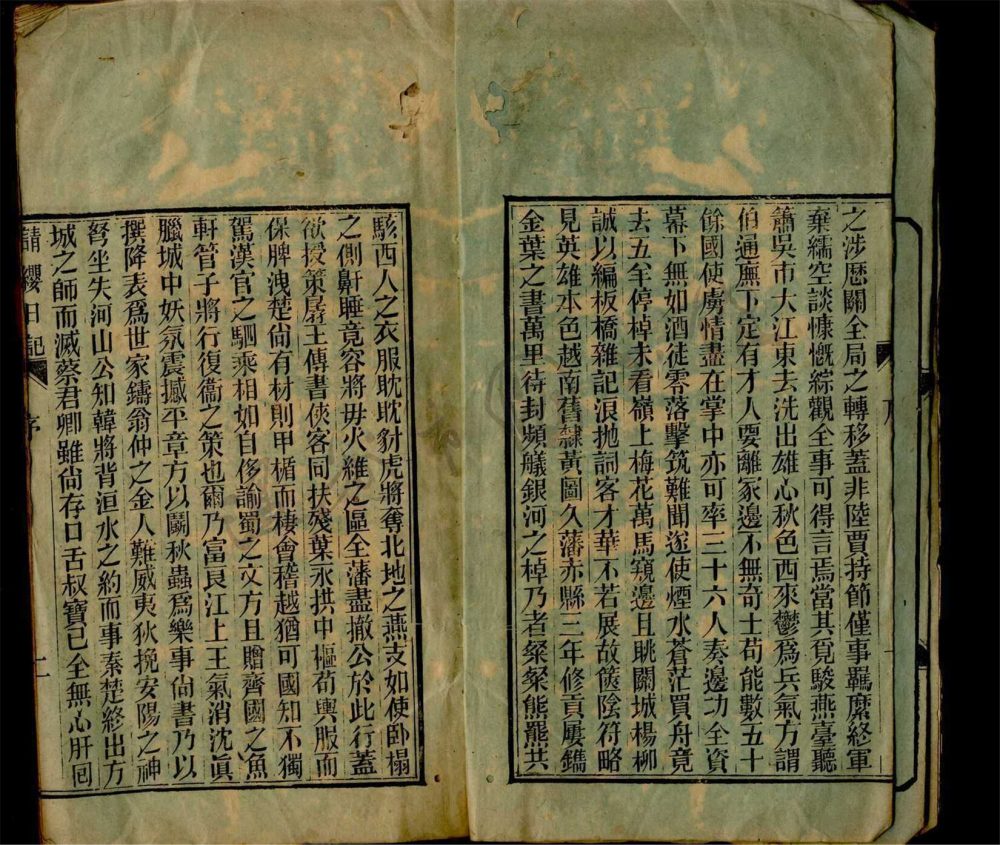 之涉歷關全局之轉移蓋非陸賈持節僅事羈縻終軍
棄繻空談慷慨綜觀全事可得言焉當其覓駿燕臺聽
簫吳市大江東去洗出雄心秋色西來鬱爲兵氣方謂
伯通廡下定有才人要離冢邊不無奇士苟能數五十
餘國使虜情盡在掌中亦可率三十六人奏邊功全資
幕下無如酒徒零落擊筑難聞遂使煙水蒼茫買舟竟
去五年停棹未看嶺上梅花萬馬窺邊且眺關城楊柳
誠以編板橋雜記浪拋詞客才華不若展故篋陰符略
見英雄本色越南舊隸黃圖久藩赤縣三年修貢屢鐫
金葉之書萬里待封頻艤銀河之棹乃者粲粲熊羆共
駭西人之衣服眈眈豺虎將奪北地之燕支如使臥榻
之側鼾睡竟容將毋火維之區全藩盡撤公於此行蓋
欲授策孱王傳書俠客同扶殘葉永拱中樞苟輿服而
保脾洩楚尙有材則甲楯而棲會稽越猶可國知不獨
駕漢官之駟乘相如自侈諭蜀之文方且贈齊國之魚
軒管子將行復衞之策也爾乃富良江上王氣消沈眞
臘城中妖氛震撼平章方以鬭秋蟲爲樂事尙書乃以
撰降表爲世家鑄翁仲之金人難威夷狄挽安陽之神
弩坐失河山公知韓將背洹水之約而事秦楚終出方
城之師而滅蔡君卿雖尙存口舌叔寶已全無心肝囘
請纓日記
序
二